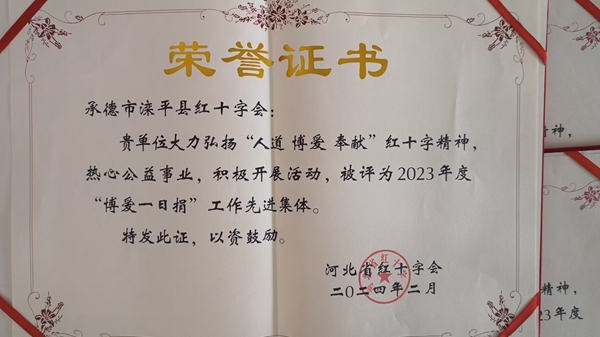 荣誉证书
承德市滦平县红十字会：
贵单位大力弘扬“人道 博爱 奉献”红十字精神，
热心公益事业，积极开展活动，被评为2023年度
“博爱一日捐”工作先进集体。
特发此证，以资鼓励。
河北省红十字会
二〇二四年二月
精神，
精神，
23年度